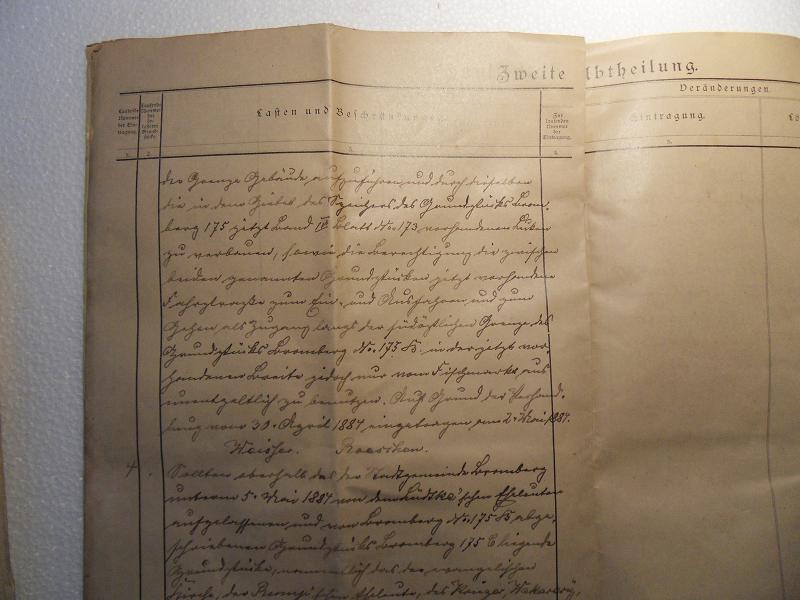 Zweite Abtheilung.
Veränderungen.
Laufende Nummer der Eintragung.
Laufende Nummer
Lasten und Beschränkungen.
Zur laufenden Nummer der Eintragung.
Eintragung.
1. 2. 3. 4. 5.
der Grenze Gebäude aufzuführen und durch dieselben
die in dem Giebel des Speichers des Grundstücks Brom-
berg 175 jetzt Band IV Blatt No. 173 vorhandenen Luken
zu verbauen, sowie die Berechtigung die zwischen
beiden genannten Grundstücken jetzt vorhandene
Fahrstraße zum Ein- und Ausfahren und zum
Gehen als Zugang längs der südöstlichen Grenze des
Grundstücks Bromberg No. 175 B. in der jetzt vor-
handenen Breite jedoch nur vom Fischmarkt aus
unentgeltlich zu benutzen. Auf Grund der Verhand-
lung vom 30. April 1884 eingetragen am 2. Mai 1884.
4 Sollten oberhalb des der Stadtgemeinde Bromberg
unterm 5. Mai 1884 von den Lüdtke'schen Eheleuten
aufgelassenen und von Bromberg No. 175 B abge-
schriebenen Grundstücks Bromberg 175 C liegende
Grundstücke, namentlich das der evangelischen
Kirche, der Eheleute, des Krüger,